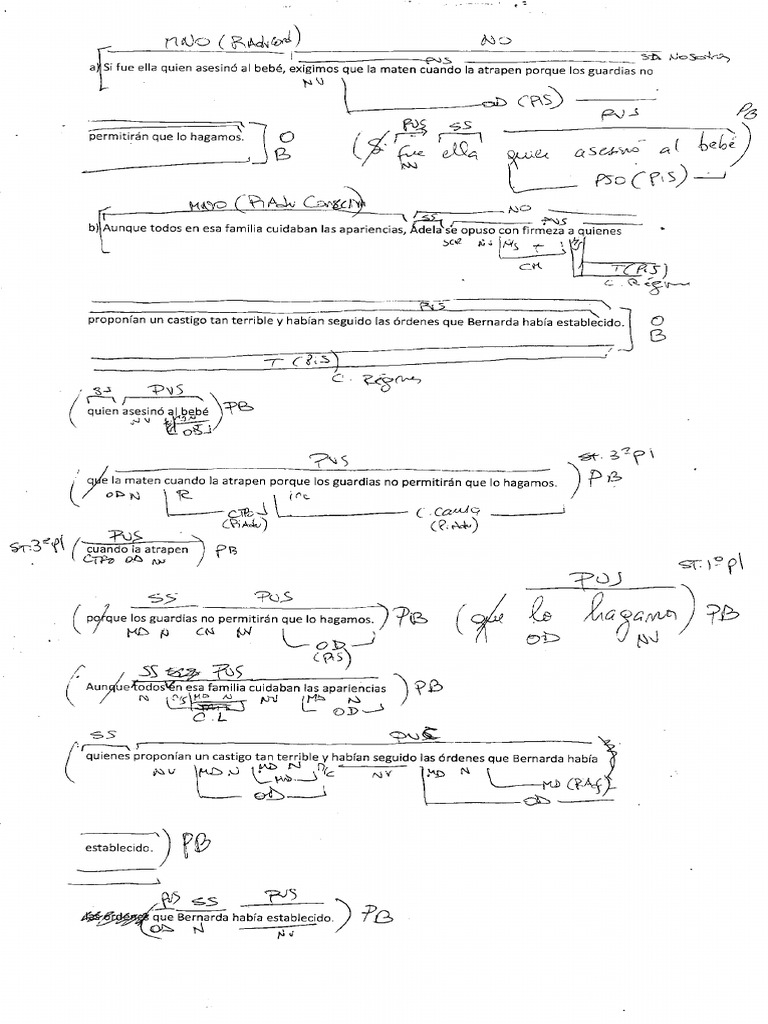 NO
PVS
a) Si fue ella quien asesinó al bebé, exigimos que la maten cuando la atrapen porque los guardias no
NV
OD (PIS)
PVS
PB
permitirán que lo hagamos.
O
B
PVS SS
(Si fue ella quien asesinó al bebé)
NV
PSO (PIS)
NO
SS PVS
b) Aunque todos en esa familia cuidaban las apariencias, Adela se opuso con firmeza a quienes
CM
T (PIS)
PVS
proponían un castigo tan terrible y habían seguido las órdenes que Bernarda había establecido.
O
B
T (PIS)
SS PVS
quien asesinó al bebé PB
NV
OD
PVS
que la maten cuando la atrapen porque los guardias no permitirán que lo hagamos.
PB
OD N
C. Causa
PVS
cuando la atrapen PB
OD NV
SS PVS
porque los guardias no permitirán que lo hagamos. PB
MD N CN NV
OD
(PIS)
PVS
(que lo hagamos) PB
OD NV
SS PVS
Aunque todos en esa familia cuidaban las apariencias PB
N MD N NV MD N
C.L OD
SS
quienes proponían un castigo tan terrible y habían seguido las órdenes que Bernarda había
NV MD N MD N NV MD N
MD
OD
OD
establecido. PB
SS PVS
que Bernarda había establecido. PB
OD N NV